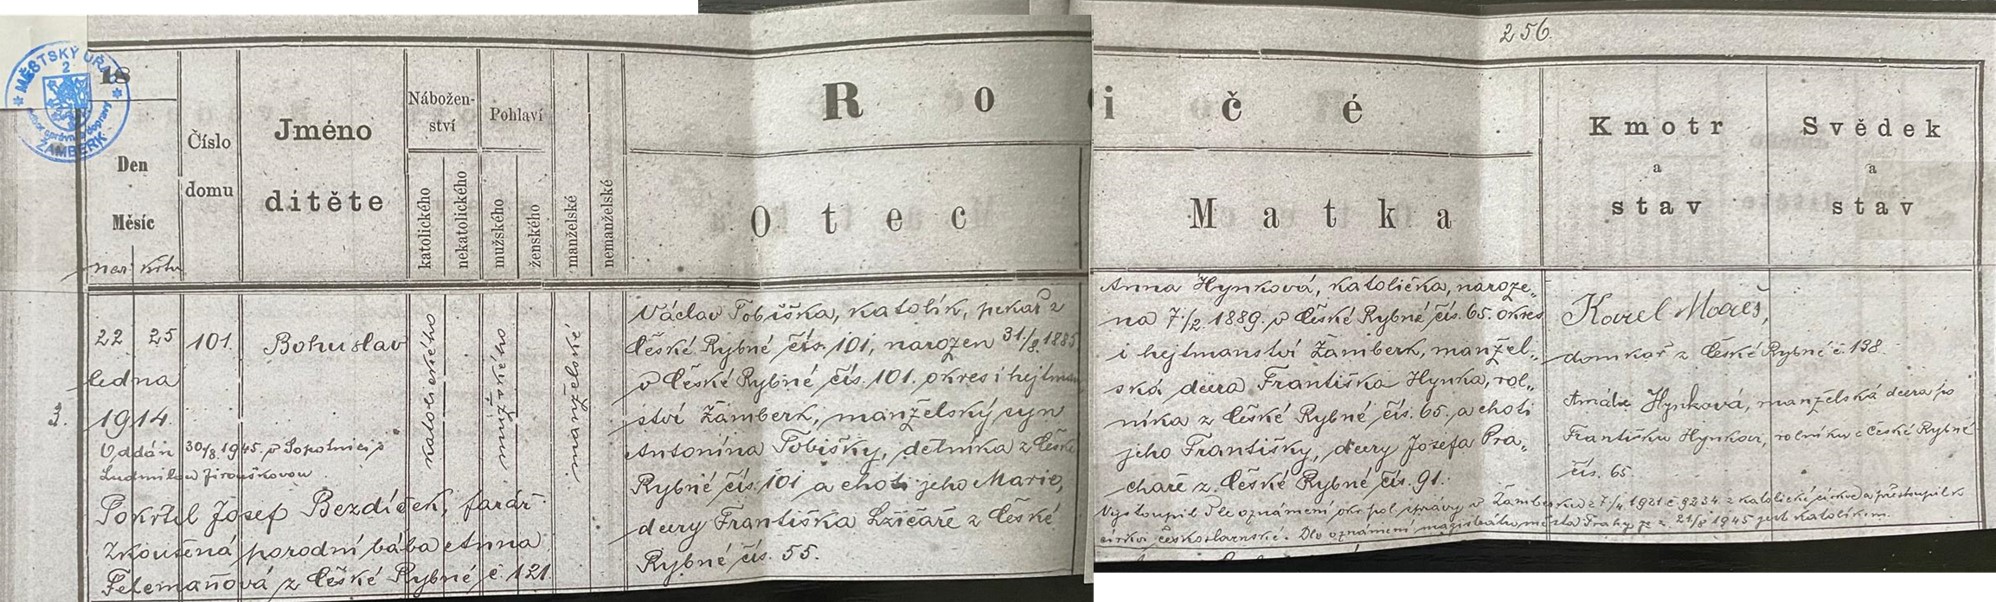 256.
MĚSTSKÝ ÚŘAD
2
ŽAMBERK
18
Den
Měsíc
nar. křtu
Číslo
domu
Jméno
dítěte
Nábožen-
ství
katolického
nekatolického
Pohlaví
mužského
ženského
manželské
nemanželské
R o i č é
Otec
Matka
Kmotr
a
stav
Svědek
a
stav
3.
22 25
ledna
1914.
101.
Bohuslav
katolického
mužského
manželské
Oddán 30/8.1945. v Sopotnici s
Ludmilou Jirouškovou
Pokřtil Josef Bezdíček, farář
Zkoušená porodní bába Anna
z České Rybné č. 121.
Václav Tobiška, katolík, pekař z
České Rybné čís. 101, narozen 31/8. 1885
v České Rybné čís. 101. okres i hejtman
ství Žamberk, manželský syn
Antonína Tobišky, dělníka z České
Rybné čís. 101 a choti jeho Marie,
dcery Františka z České
Rybné čís. 55.
Anna Hynková, katolička, naroze-
na 7./2. 1889. v České Rybné čís. 65. okres
i hejtmanství Žamberk, manžel-
ská dcera Františka Hynka, rol-
níka z České Rybné čís. 65. a choti
jeho Františky, dcery Josefa Pra-
chaře z České Rybné čís. 91.
Vystoupil dle oznámení okr. pol. správy v Žamberku z 7/4 1921 č. 9234 z katolické církve a přestoupil k
církvi československé. Dle oznámení magistrátu hl. města Prahy ze z. 21/8 1945 jest katolíkem.
Karel Mareš,
domkař z České Rybné č. 138.
Amálie Hynková, manželská dcera po
Františku Hynkovi, rolníku z České Rybné
čís. 65